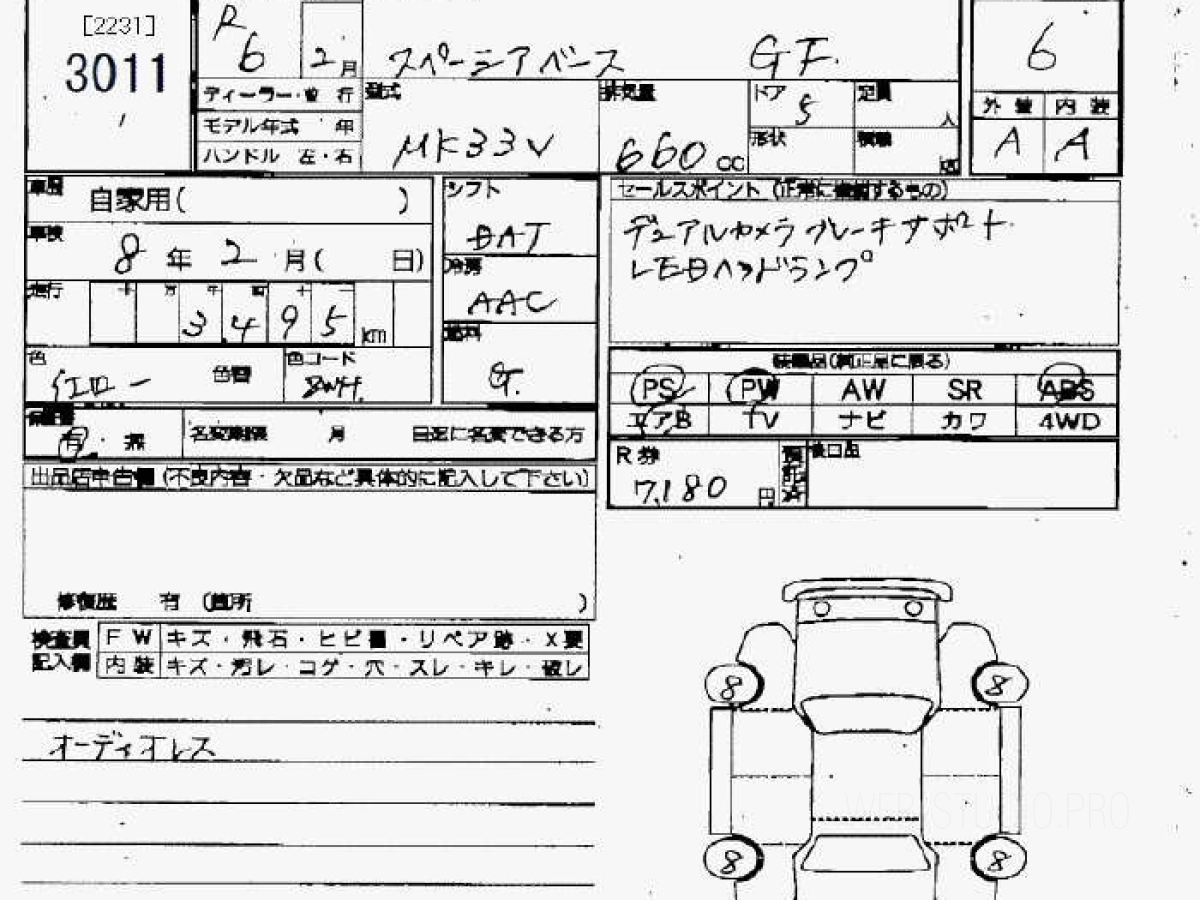 [2231]
3011
R
6 2月 スペーシアベース GF.
6
ディーラー・並 行 型式 排気量 ドア 5 定員 人
外装 内装
モデル年式 年 MK33V 660cc 形状 積載
A A
ハンドル 左・右
車歴 自家用( ) シフト
セールスポイント (正常に機能するもの)
DAT
デュアルカメラブレーキサポート
車検 8年 2月( 日) 冷房
LEDヘッドランプ
AAC
走行 十 万 千 百 十 一
3,495 km 燃料
G.
色 イエロー 色替 色コード
装備品(純正品に限る)
PS PW AW SR ABS
保証書 有・無 名変期限 月 日迄に名変できる方
エアB TV ナビ カワ 4WD
R券 7,180円 預託済 後日品
出品店申告欄 (不良内容・欠品など具体的に記入して下さい)
修復歴 有 (箇所 )
検査員 FW キズ・飛石・ヒビ・リペア跡・X要
記入欄 内装 キズ・汚レ・コゲ・穴・スレ・キレ・破レ
8 8
オーディオレス
WEB-STUDIO.PRO
8 8